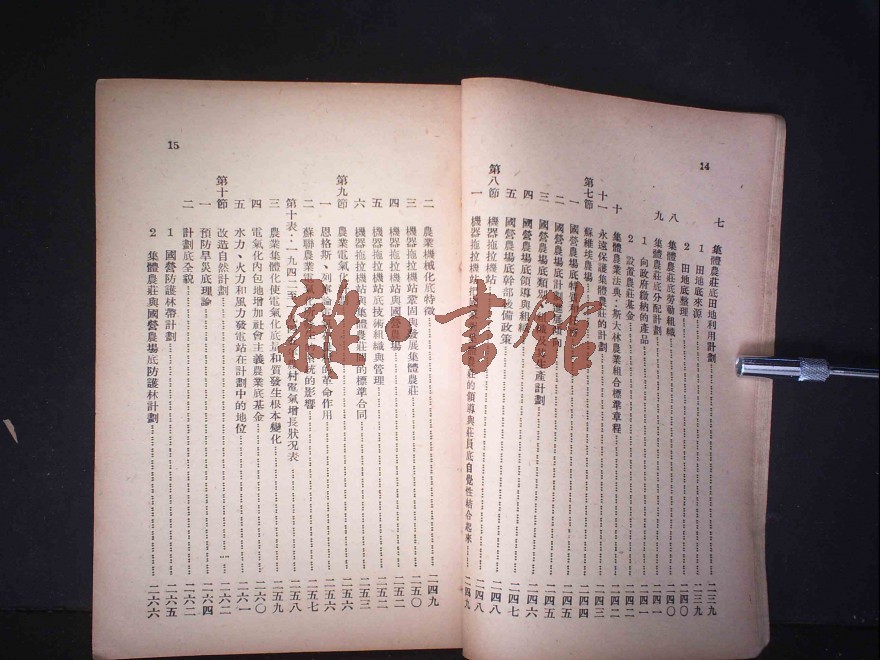 14
七 集體農莊底田地利用計劃 二三九
1 田地底來源 二三九
2 田地底整理 二四〇
八 集體農莊底勞動組織 二四〇
九 集體農莊底分配計劃 二四一
1 向政府繳納的產品 二四一
2 設置農莊基金 二四二
十 集體農業法典：斯大林農業組合標準章程 二四二
十一 永遠保護集體農莊的計劃 二四三
第七節 蘇維埃農場 二四四
一 國營農場底特徵 二四五
二 國營農場底計劃 二四五
三 國營農場底類別 生產計劃 二四五
四 國營農場底領導與組織 二四六
五 國營農場底幹部設備政策 二四七
第八節 機器拖拉機站 二四八
一 機器拖拉機站 莊的領導與莊員底自覺性結合起來 二四九
15
二 農業機械化底特徵 二四九
三 機器拖拉機站鞏固與發展集體農莊 二五〇
四 機器拖拉機站與國營農場 二五二
五 機器拖拉機站底技術組織與管理 二五二
六 機器拖拉機站與集體農莊間的標準合同 二五三
第九節 農業電氣化 二五六
一 恩格斯、列寧論 的革命作用 二五六
二 蘇聯農業電氣 系統的影響 二五七
第十表：一九四二年 農村電氣增長狀況表 二五八
三 農業集體化使電氣化底質和質發生根本變化 二五九
四 電氣化內包地增加社會主義農業底基金 二六〇
五 水力、火力和風力發電站在計劃中的地位 二六一
第十節 改造自然計劃 二六二
一 預防旱災底理論 二六四
二 計劃底全貌 二六二
1 國營防護林帶計劃 二六五
2 集體農莊與國營農場底防護林計劃 二六六
雜·書館